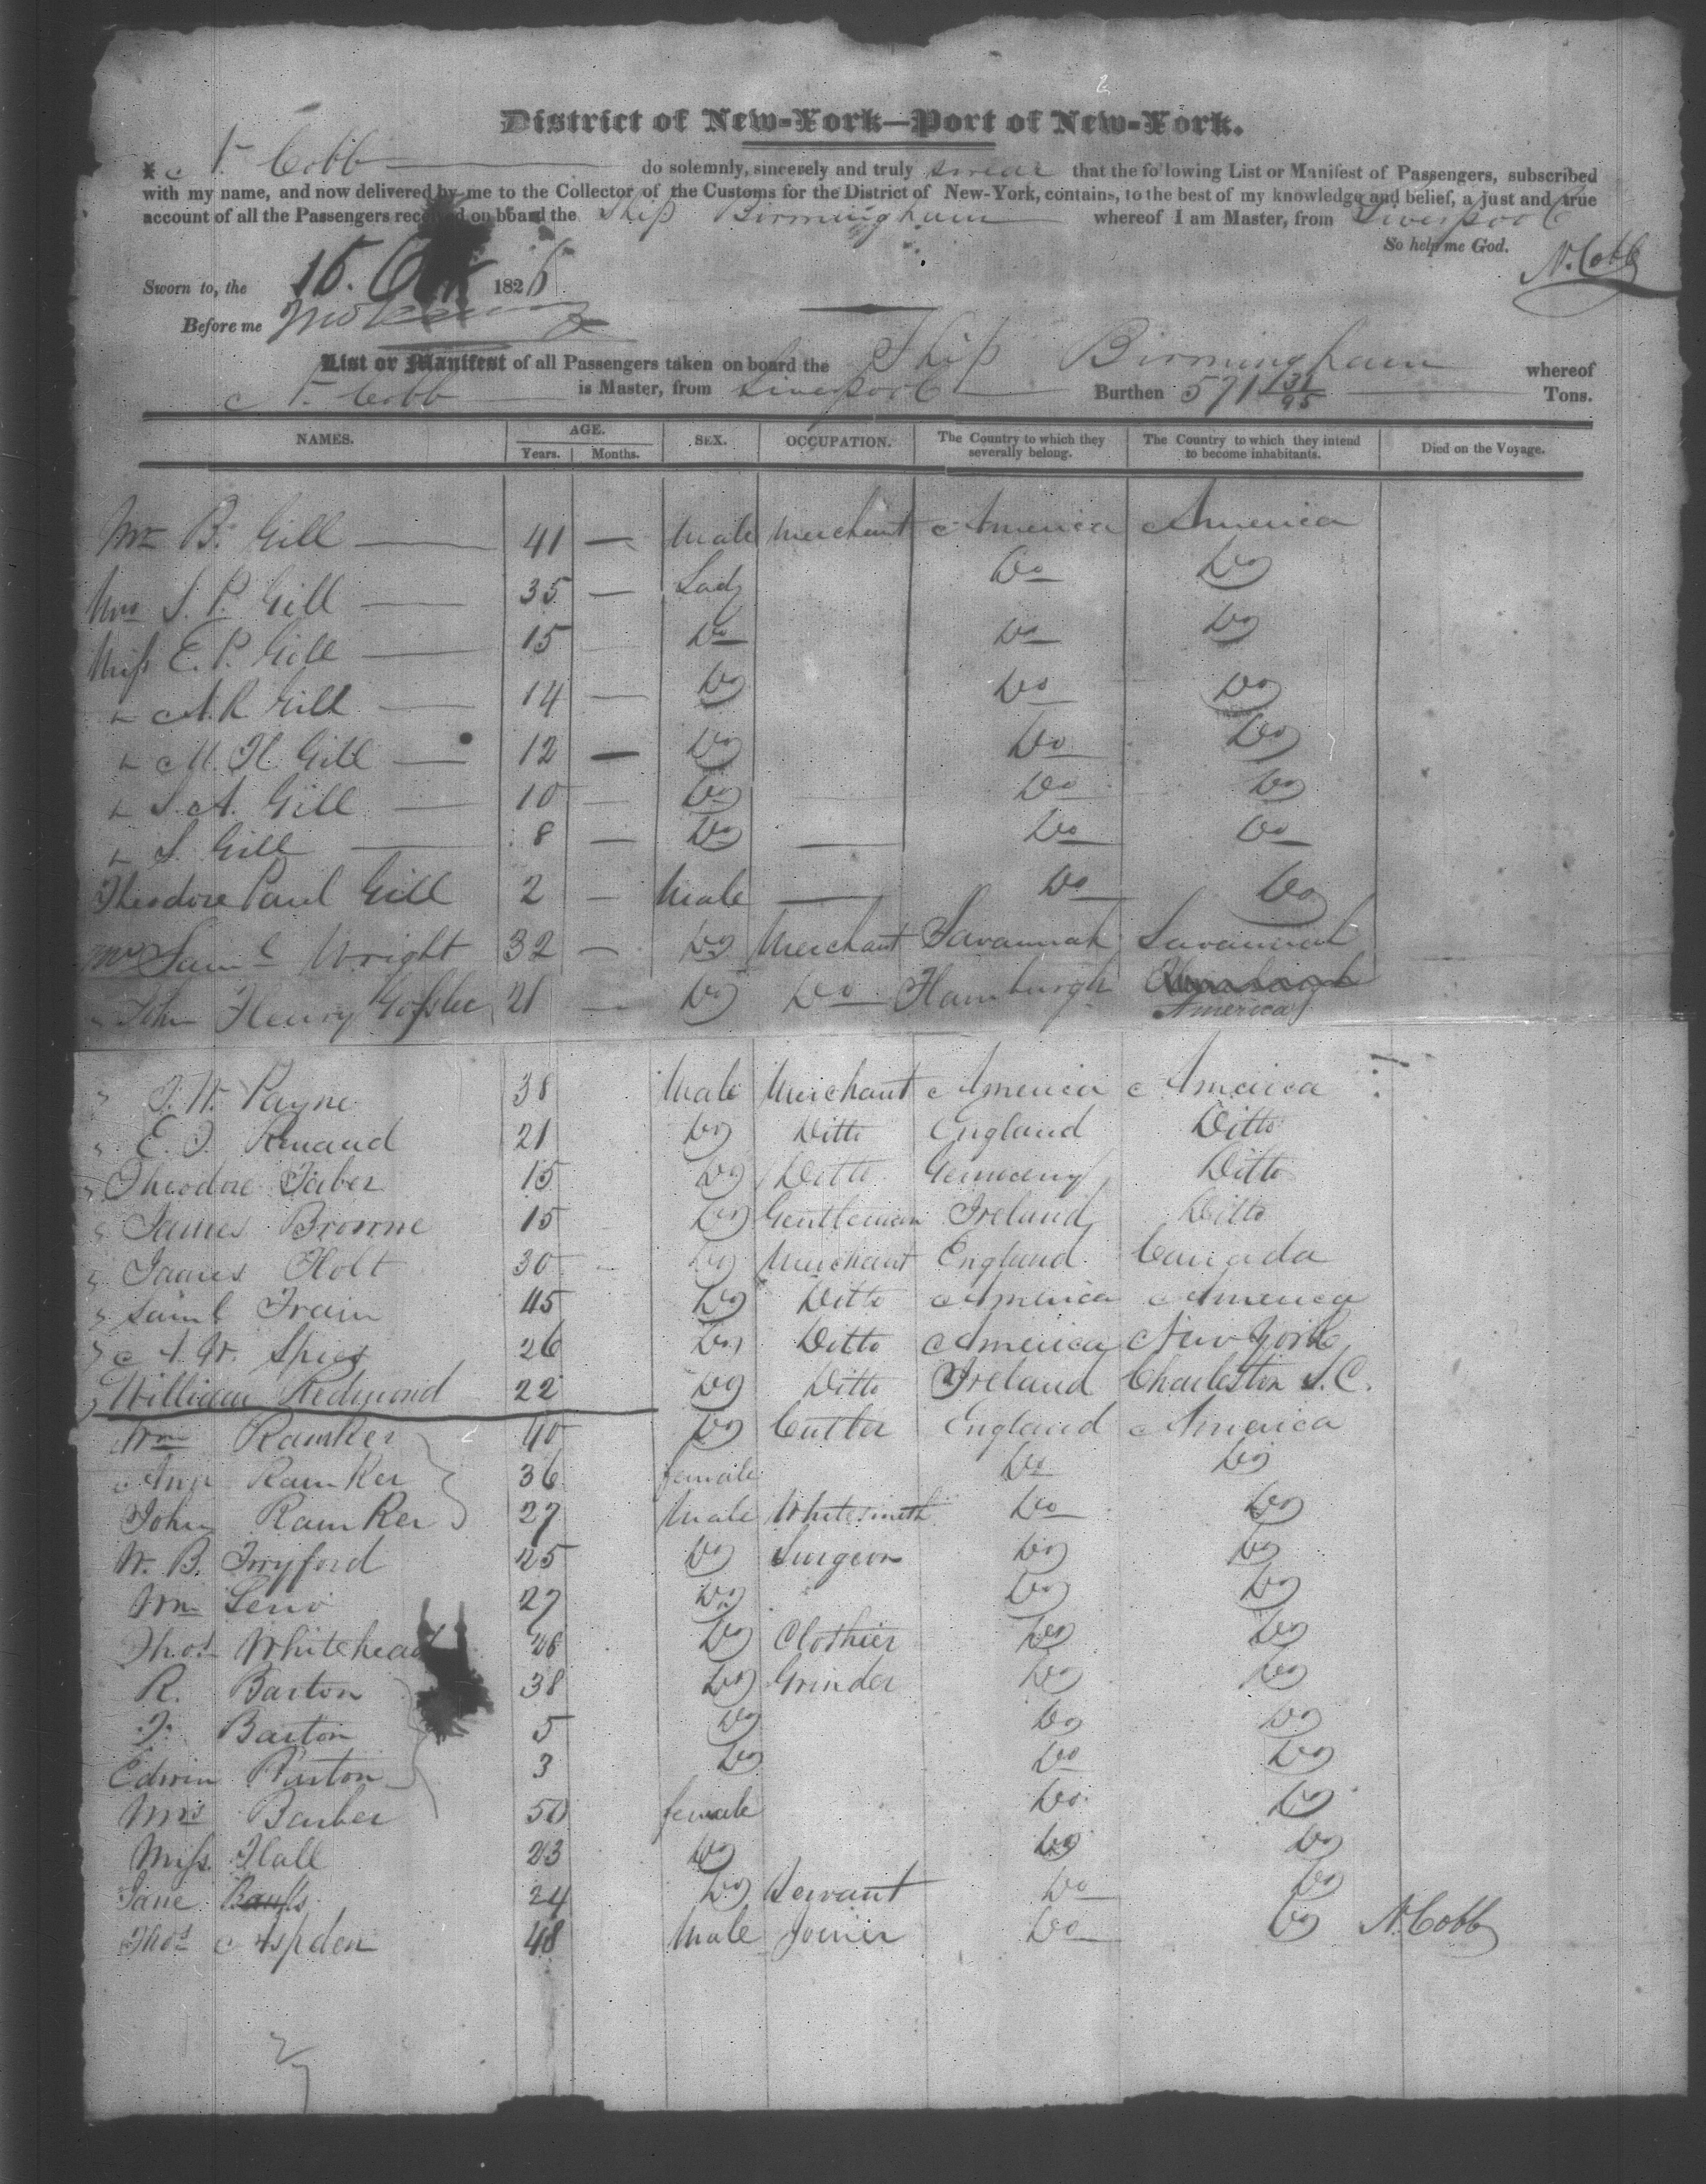 District of New-York—Port of New-York.
I, N. Cobb do solemnly, sincerely and truly swear that the following List or Manifest of Passengers, subscribed
with my name, and now delivered by me to the Collector of the Customs for the District of New-York, contains, to the best of my knowledge and belief, a just and true
account of all the Passengers received on board the Ship Birmingham whereof I am Master, from Liverpool
So help me God. N. Cobb
Sworn to, the 15. Oct 1826
Before me
List or Manifest of all Passengers taken on board the Ship Birmingham whereof
N. Cobb is Master, from Liverpool Burthen 571 31/95 Tons.
NAMES. AGE. Years. Months. SEX. OCCUPATION. The Country to which they severally belong. The Country to which they intend to become inhabitants. Died on the Voyage.
Mr B. Gill 41 — Male Merchant America America
Mrs S. P. Gill 35 — Lady Do Do
Miss E. P. Gill 15 Do Do Do
" A. R. Gill 14 — Do Do Do
" M. H. Gill 12 — Do Do Do
" S. A. Gill 10 — Do — Do Do
" S. Gill 8 — Do — Do Do
Theodore Paul Gill 2 — Male — Do Do
Mr Saml Wright 32 — Do Merchant Savannah Savannah
" John Henry 21 — Do Do Hamburgh America
" J. W. Payne 38 Male Merchant America America
" E. J. Renaud 21 Do Ditto England Ditto
" Theodore Faber 15 Do Ditto Germany Ditto
" James Browne 15 Do Gentleman Ireland Ditto
" James Holt 30 Do Merchant England Canada
" Saml Train 45 Do Ditto America America
" A. W. Spies 26 Do Ditto America New York
" William Redmond 22 Do Ditto Ireland Charleston S. C.
Wm Ramker 40 Do Cutler England America
Ann Ramker 36 female Do Do
John Ramker 27 Male Whitesmith Do Do
W. B. Twyford 25 Do Surgeon Do Do
Wm 27 Do Do Do
Thos Whitehead 28 Do Clothier Do Do
R. Barton 38 Do Grinder Do Do
J. Barton 5 Do Do Do
Edwin Barton 3 Do Do Do
Mrs Barber 50 female Do Do
Miss Hall 23 Do Do Do
Jane Banks 24 Do Servant Do Do
Thos Aspden 48 Male Joiner Do Do N. Cobb